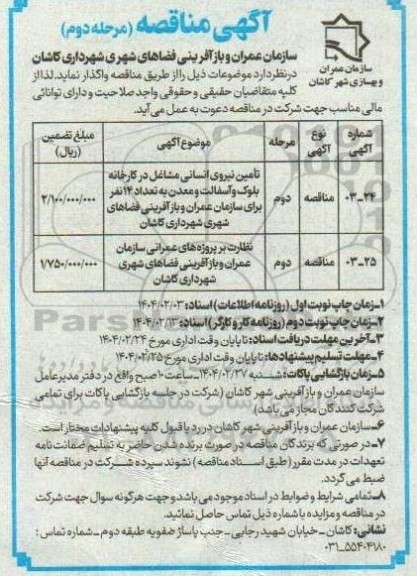 آگهی مناقصه (مرحله دوم)
سازمان عمران و بازآفرینی فضاهای شهری شهرداری کاشان
درنظر دارد موضوعات ذیل را از طریق مناقصه واگذار نماید. لذا از
کلیه متقاضیان حقیقی و حقوقی واجد صلاحیت و دارای توانائی
مالی مناسب جهت شرکت در مناقصه دعوت به عمل می‌آید.
سازمان عمران
و بهسازی شهر کاشان
شماره آگهی نوع آگهی مرحله موضوع آگهی مبلغ تضمین (ریال)
۰۳-۲۴ مناقصه دوم تامین نیروی انسانی مشاغل در کارخانه
بلوک و آسفالت و معدن به تعداد ۱۴ نفر
برای سازمان عمران و بازآفرینی فضاهای
شهری شهرداری کاشان ۲/۱۰۰/۰۰۰/۰۰۰
۰۳-۲۵ مناقصه دوم نظارت بر پروژه‌های عمرانی سازمان
عمران و بازآفرینی فضاهای شهری
شهرداری کاشان ۱/۷۵۰/۰۰۰/۰۰۰
۱-زمان چاپ نوبت اول (روزنامه اطلاعات) اسناد: ۱۴۰۴/۰۲/۰۳
۲-زمان چاپ نوبت دوم (روزنامه کار و کارگر) اسناد: ۱۴۰۴/۰۲/۱۳
۳-آخرین مهلت دریافت اسناد: تا پایان وقت اداری مورخ ۱۴۰۴/۰۲/۲۴
۴-مهلت تسلیم پیشنهادها: تا پایان وقت اداری مورخ ۱۴۰۴/۰۲/۲۵
۵-زمان بازگشایی پاکات: شنبه ۱۴۰۴/۰۲/۲۷-ساعت ۱۰ صبح واقع در دفتر مدیرعامل
سازمان عمران و بازآفرینی شهر کاشان (شرکت در جلسه بازگشایی پاکات برای تمامی
شرکت کنندگان مجاز می‌باشد)
۶-سازمان عمران و بازآفرینی شهر کاشان در رد یا قبول کلیه پیشنهادات مختار است.
۷-در صورتی که برندگان مناقصه در صورت برنده شدن حاضر به تسلیم ضمانت نامه
تعهدات در مدت مقرر (طبق اسناد مناقصه) نشوند سپرده شرکت در مناقصه آنها
ضبط می‌گردد.
۸-تمامی شرایط و ضوابط در اسناد موجود می‌باشد و جهت هرگونه سوال جهت شرکت
در مناقصه و مزایده با شماره ذیل تماس حاصل نمائید.
نشانی: کاشان - خیابان شهید رجایی - جنب پاساژ صفویه طبقه دوم - شماره تماس:
۰۳۱-۵۵۴۰۴۱۸۰